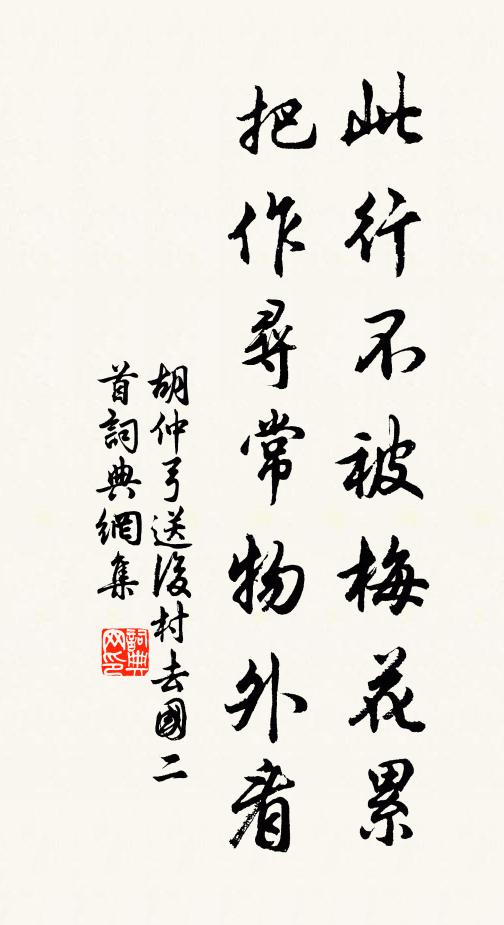 此行不被梅花累
把作尋常物外看
胡仲弓送後村去國二
首詞典網集
詞典网印